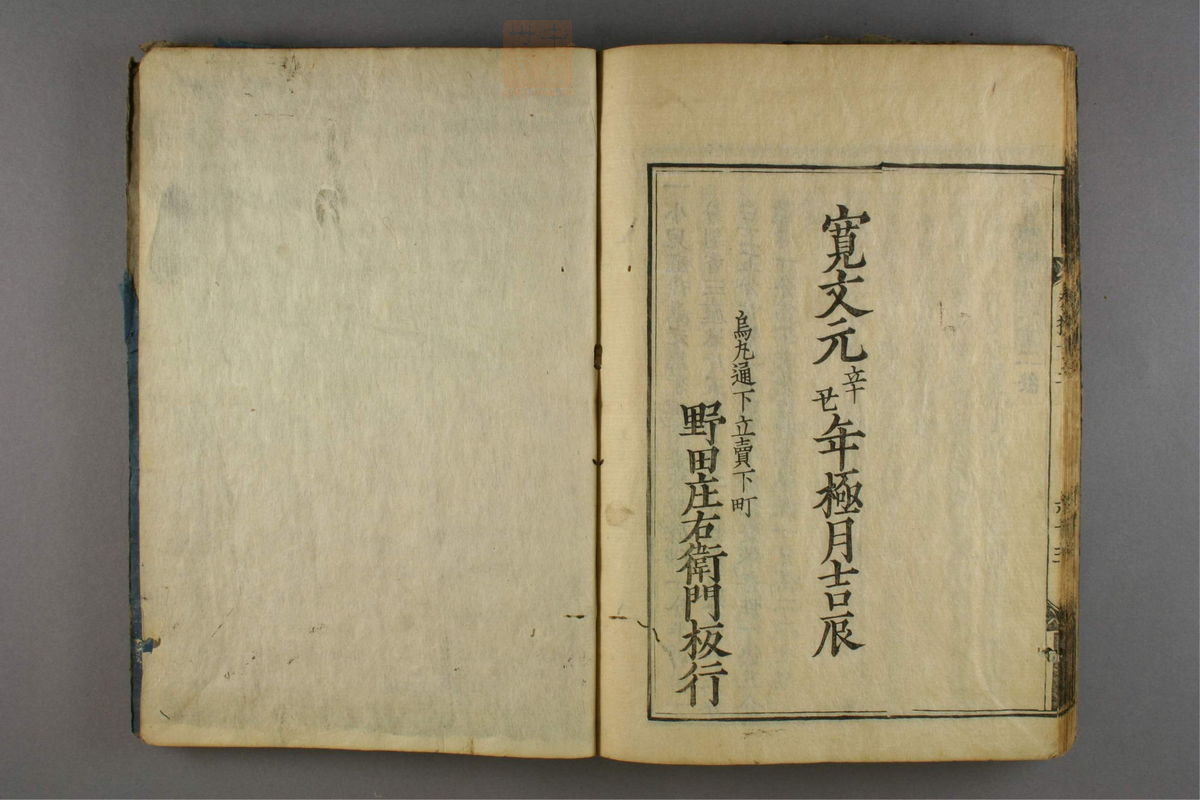 寛文元辛丑年極月吉辰
烏丸通下立賣下町
野田庄右衛門板行